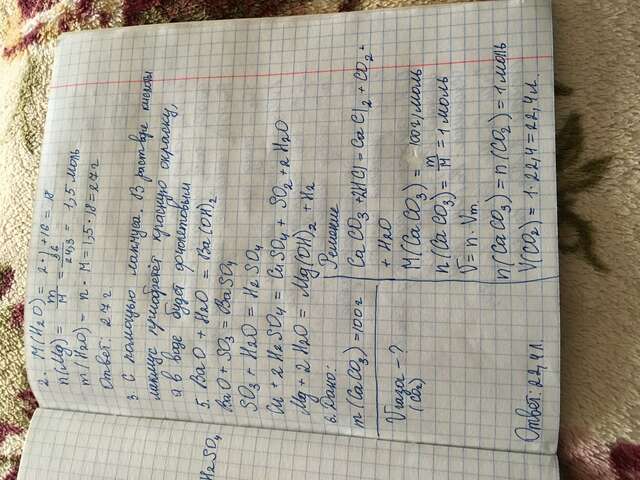 2. M(H₂O) = 2·1+16 = 18
n(Mg) = m/M = 36/24,3 = 1,5 моль
m(H₂O) = n·M = 1,5·18 = 27г
Ответ: 27г
3. С помощью лакмуса. В растворе кислоты
лакмус приобретёт красную окраску,
а в воде будет фиолетовым
5. BaO + H₂O = Ba(OH)₂
BaO + SO₃ = BaSO₄
SO₃ + H₂O = H₂SO₄
Cu + 2H₂SO₄ = CuSO₄ + SO₂ + 2H₂O
Mg + 2H₂O = Mg(OH)₂ + H₂
6. Дано:
m(CaCO₃) = 100г
Vгаза - ?
(CO₂)
Решение
CaCO₃ + 2HCl = CaCl₂ + CO₂ +
+ H₂O
M(CaCO₃) = 100г/моль
n(CaCO₃) = m/M = 1 моль
V = n·Vm
n(CaCO₃) = n(CO₂) = 1 моль
V(CO₂) = 1·22,4 = 22,4л.
Ответ: 22,4л.
H₂SO₄